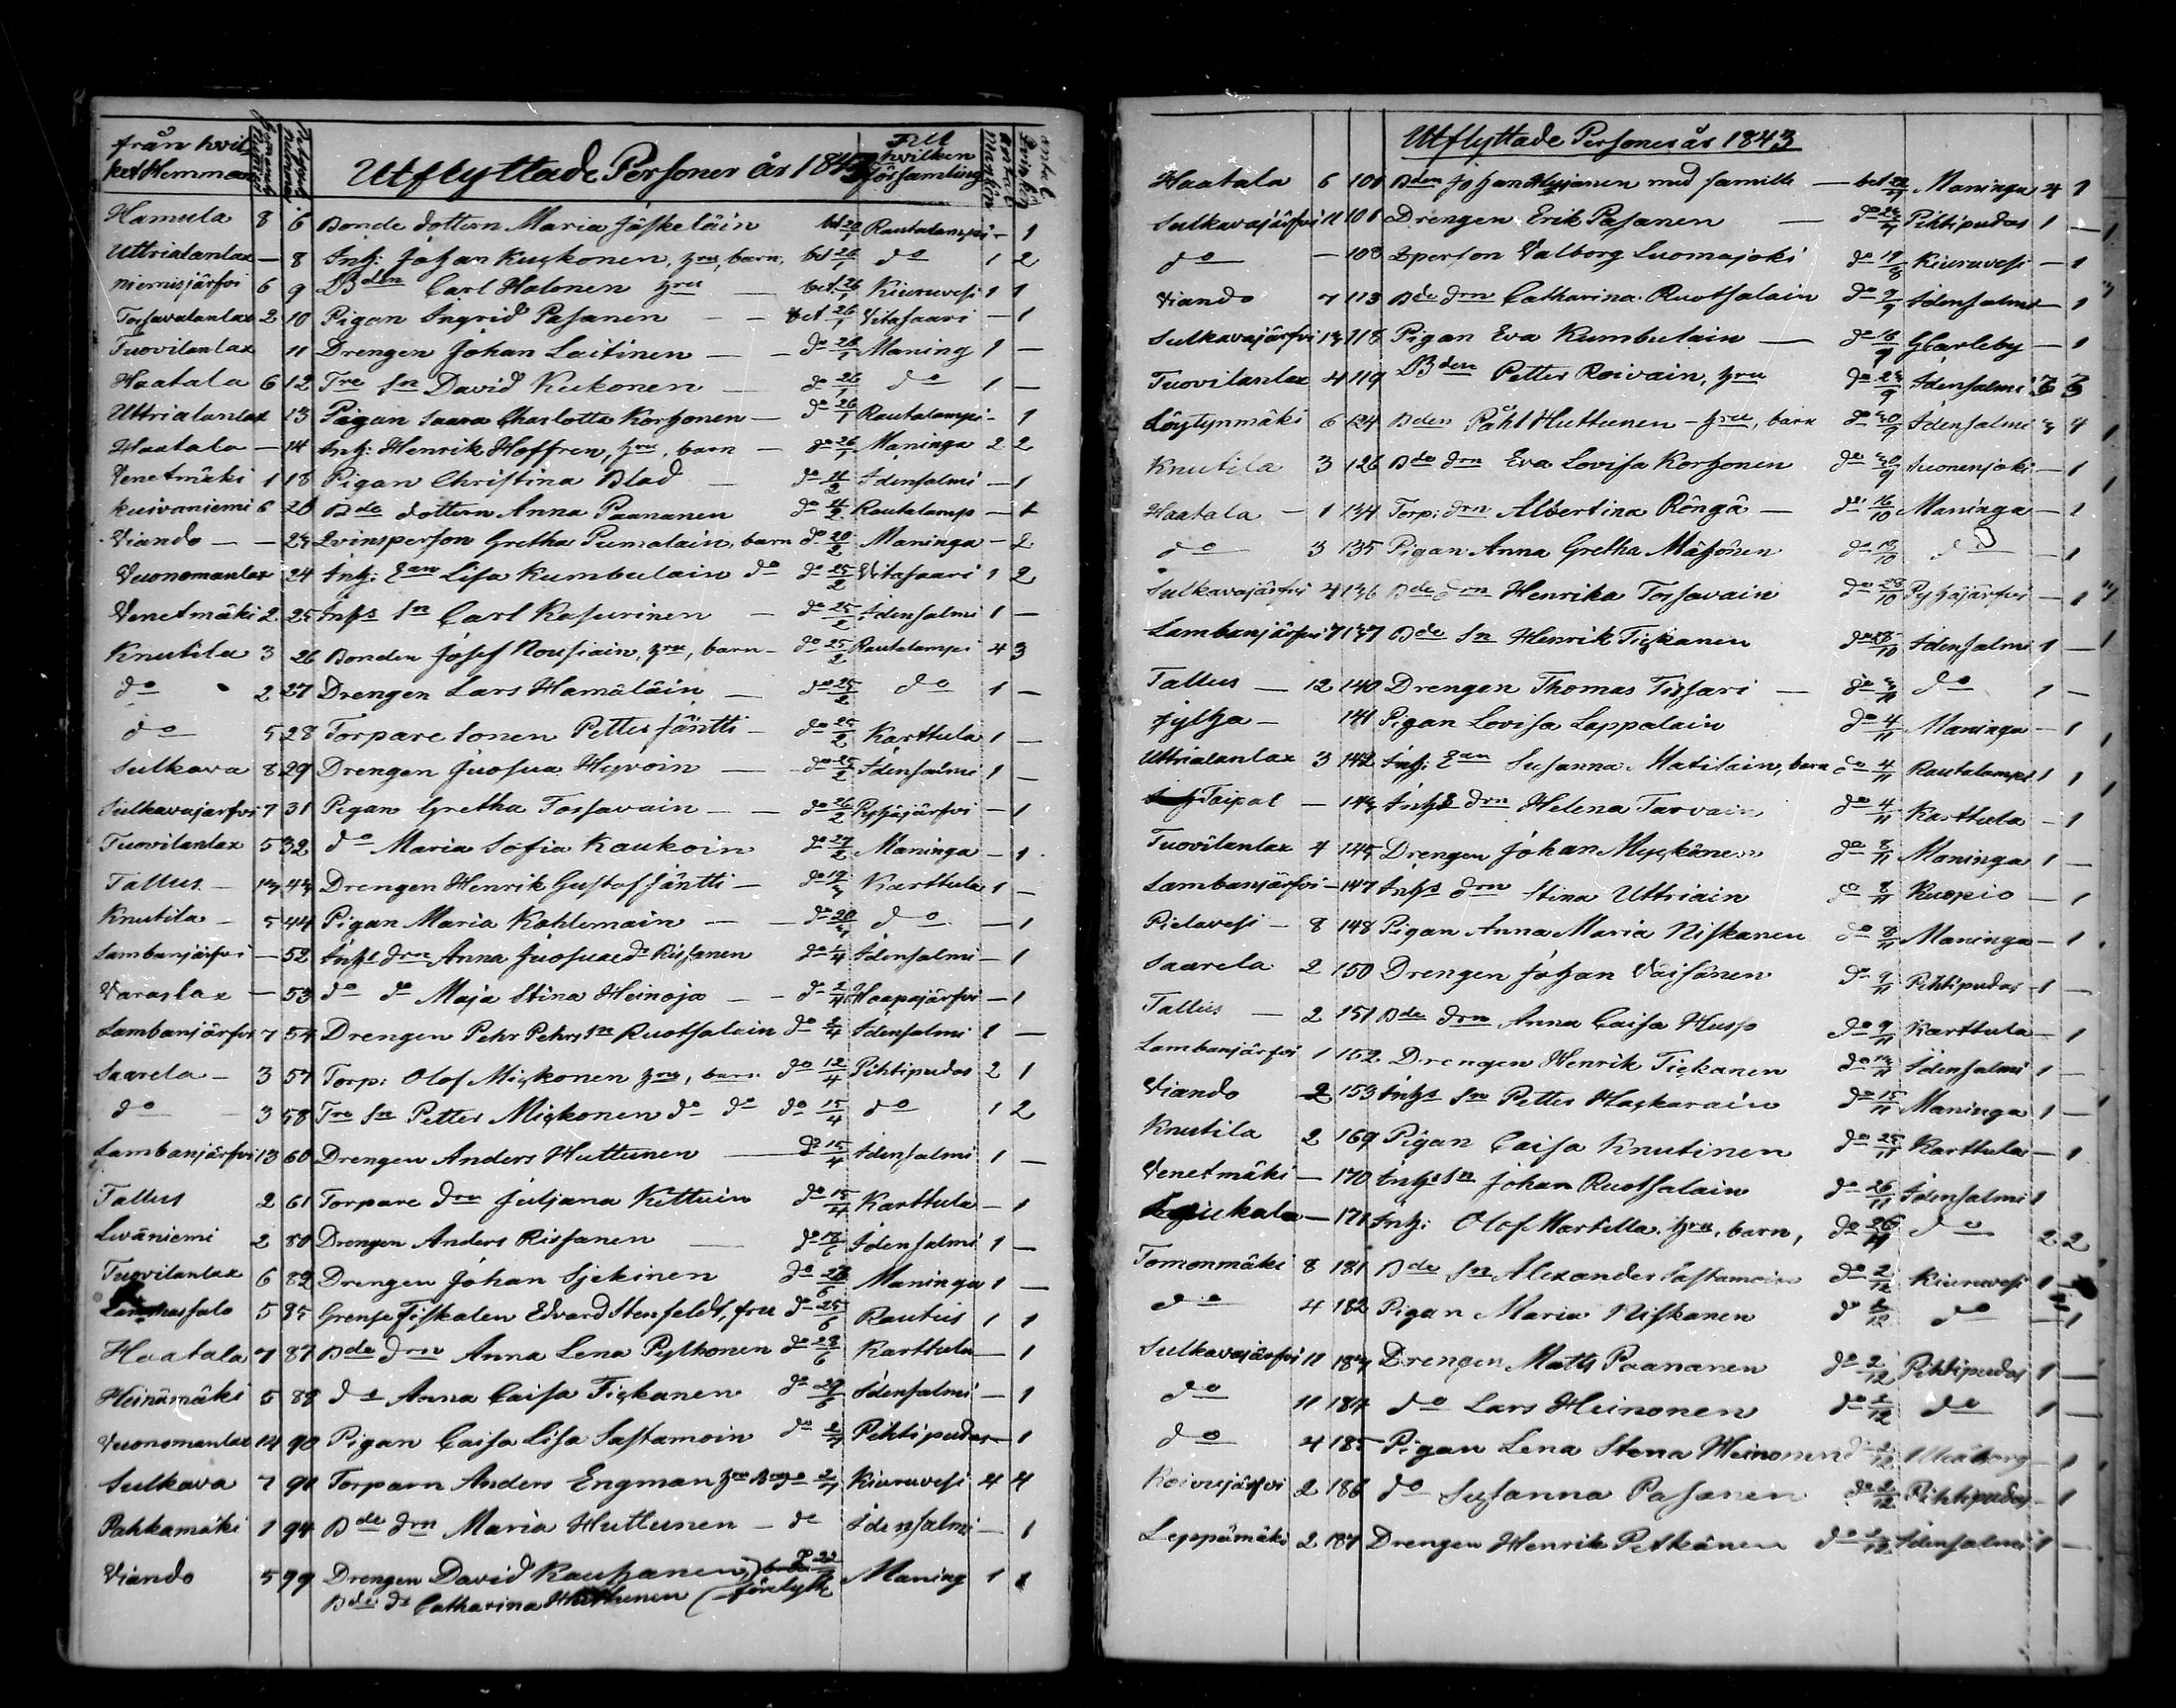 från hvil
ket Hemman
Utflyttade Personer år 1843
Till
hvilken
församling
Hamula 8 6 Bonde dottern Maria Jäskeläin bet 20/1 Rautalampi - 1
Uttrialanlax - 8 Inh: Johan Kuckonen, hru, barn, bet 26/1 do 1 2
Niemisjärfvi 6 9 Bden Carl Halonen hru bet 26/1 Kiuruvesi 1 1
Tossavalanlax 2 10 Pigan Ingrid Pasanen - - bet 26/1 Vitasaari - 1
Tuovilanlax 11 Drengen Johan Laitinen - - do 26/1 Maning 1 -
Haatala 6 12 Tre Sn David Kukonen - do 26/1 do 1 -
Uttrialanlax 13 Pigan Saara Charlotta Korhonen - do 26/1 Rautalampi - 1
Haatala - 14 Inh: Henrik Hoffren, hru, barn - do 26/1 Maninga 2 2
Venetmäki 1 18 Pigan Christina Blad - do 11/2 Idensalmi - 1
Kuivaniemi 6 20 Bde dottern Anna Paananen do 11/2 Rautalamp - 1
Viando - - 23 Qvinsperson Gretha Pumalain, barn do 20/2 Maninga - 2
Vuonomanlax 24 Inh: Ean Lisa Kumbulain do do 25/2 Vitasaari 1 2
Venetmäki 2 25 Inhs Sn Carl Kasurinen - do 25/2 Idensalmi 1 -
Knutila 3 26 Bonden Josef Rousiain, hru, barn - do 25/2 Rautalampi 4 3
do 2 27 Drengen Lars Hamäläin - do 25/2 do 1 -
do 5 28 Torpare Sonen Petter Jäntti - do 25/2 Karttula 1 -
Sulkava 8 29 Drengen Juosua Hyvoin - do 25/2 Idensalmi 1 -
Sulkavajärfvi 7 31 Pigan Gretha Tossavain - - do 26/2 Pyhäjärfvi - 1
Tuovilanlax 5 32 do Maria Sofia Kaukoin do 27/2 Maninga - 1
Tallus - 13 43 Drengen Henrik Gustaf Jäntti - do 19/3 Karttula 1 -
Knutila - 5 44 Pigan Maria Kohlemain - - do 20/3 do - 1
Lambanjärfvi - 52 Inhs drn Anna Juosuaed Rissanen do 1/4 Idensalmi - 1
Varaslax - 53 do do Maja Stina Heinoja - - do 2/4 Haapajärfvi - 1
Lambanjärfvi 7 54 Drengen Pehr Pehrs Sn Ruotsalain do 2/4 Idensalmi 1 -
Saarela - 3 57 Torp: Olof Mickonen hru, barn do 12/4 Pihtipudas 2 1
do 3 58 Tre Sn Petter Mickonen do do do 15/4 do 1 2
Lambanjärfvi 13 60 Drengen Anders Huttunen - do 15/4 Idensalmi 1 -
Tallus 2 61 Torpare drn Juljana Kettuin do 15/4 Karttula - 1
Leväniemi 2 80 Drengen Anders Rissanen - do 18/6 Idensalmi 1 -
Tuovilanlax 6 82 Drengen Johan Sjekinen do 26/6 Maninga 1 -
5 85 Grense Fiskalen Edvard Stenfeldt, fru do 25/6 Rautus 1 1
Haatala 7 87 Bde drn Anna Lena Pylkonen do 28/6 Karttula - 1
Heinämäki 5 88 do Anna Caisa Tickanen do 29/6 Idensalmi - 1
Vuonomanlax 14 90 Pigan Caisa Lisa Sastamoin do 2/7 Pihtipudas - 1
Sulkava 7 91 Torparn Anders Engman hru do 2/7 Kiuruvesi 4 4
Pahkamäki 1 94 Bde drn Maria Huttunen - do Idensalmi - 1
Viando 5 99 Drengen David Kauhanen do 22/7 Maning 1 1
Bde dr Catharina Huttunen
Utflyttade Personer år 1843
Haatala 6 101 Bden Johan Hujanen med famille - bet 22/7 Maninga 4 1
Sulkavajärfvi 11 106 Drengen Erik Pasanen - do 24/7 Pihtipudas 1 -
do - 108 Qperson Valborg Luomajoki do 19/8 Kiuruvesi - 1
Viando 7 113 Bde drn Catharina Ruotsalain do 9/9 Idensalmi - 1
Sulkavajärfvi 13 118 Pigan Eva Kumbulain - do 18/9 Gcarleby - 1
Tuovilanlax 4 119 Bden Petter Roivain, hru do 23/9 Idensalmi 3 3
Löytynmäki 6 124 Bden Påhl Huttunen - hru, barn do 30/9 Idensalmi 3 4
Knutila 3 126 Bde drn Eva Lovisa Korhonen do 30/9 Suonenjoki - 1
Haatala - 1 134 Torp: drn Albertina Rôngâ - do 16/10 Maninga - 1
do 3 135 Pigan Anna Gretha Mäkönen do 18/10 do - 1
Sulkavajärfvi 4 136 Bde drn Henrika Tossavain do 28/10 Pyhäjärfvi - 1
Lambanjärfvi 7 137 Bde Sn Henrik Tickanen do 28/10 Idensalmi 1 -
Tallus - 12 140 Drengen Thomas Tissari - do 3/11 do 1 -
Jylha - 141 Pigan Lovisa Lappalain do 4/11 Maninga - 1
Uttrialanlax 3 142 Inh: Ean Susanna Matilain, barn do 4/11 Rautalampi 1 1
Taipal - 143 Inhs drn Helena Tarvain do 4/11 Karttula - 1
Tuovilanlax 4 145 Drengen Johan Myckänen do 8/11 Maninga 1 -
Lambanjärfvi - 147 Inhs drn Stina Uttriain do 8/11 Kuopio - 1
Pielavesi - 8 148 Pigan Anna Maria Niskanen do 8/11 Maninga - 1
Saarela 2 150 Drengen Johan Väisänen do 9/11 Pihtipudas 1 -
Tallus - 2 151 Bde drn Anna Caisa Husso do 9/11 Karttula - 1
Lambanjärfvi 1 152 Drengen Henrik Tickanen do 13/11 Idensalmi 1 -
Viando 2 153 Inhs Sn Petter Hackarain do 15/11 Maninga 1 -
Knutila 2 169 Pigan Caisa Knutinen do 25/11 Karttula - 1
Venetmäki - 170 Inhs Sn Johan Ruotsalain do 26/11 Idensalmi 1
- 171 Inh: Olof Martilla, hru, barn, do 26/11 do 2 2
Tomonmäki 8 181 Bde Sn Alexander Sastamoin do 2/12 Kiuruvesi 1 -
do 4 182 Pigan Maria Niskanen do 2/12 do - 1
Sulkavajärfvi 11 183 Drengen Matts Paananen do 2/12 Pihtipudas 1 -
do 11 184 do Lars Heinonen do 2/12 do 1 -
do 4 185 Pigan Lena Stena Heinonen do 2/12 Uleåborg - 1
Koivujärfvi 2 186 do Susanna Pasanen do 2/12 Pihtipudas - 1
Leppämäki 2 187 Drengen Henrik Petkänen do 2/12 Idensalmi 1 -